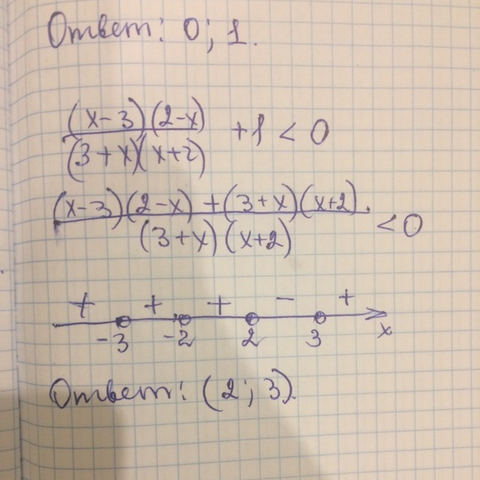 Ответ: 0; 1.
(x-3)(2-x)/(3+x)(x+2) +1 < 0
(x-3)(2-x)+(3+x)(x+2)/(3+x)(x+2) < 0
+ + + - +
-3 -2 2 3 x
Ответ: (2; 3).